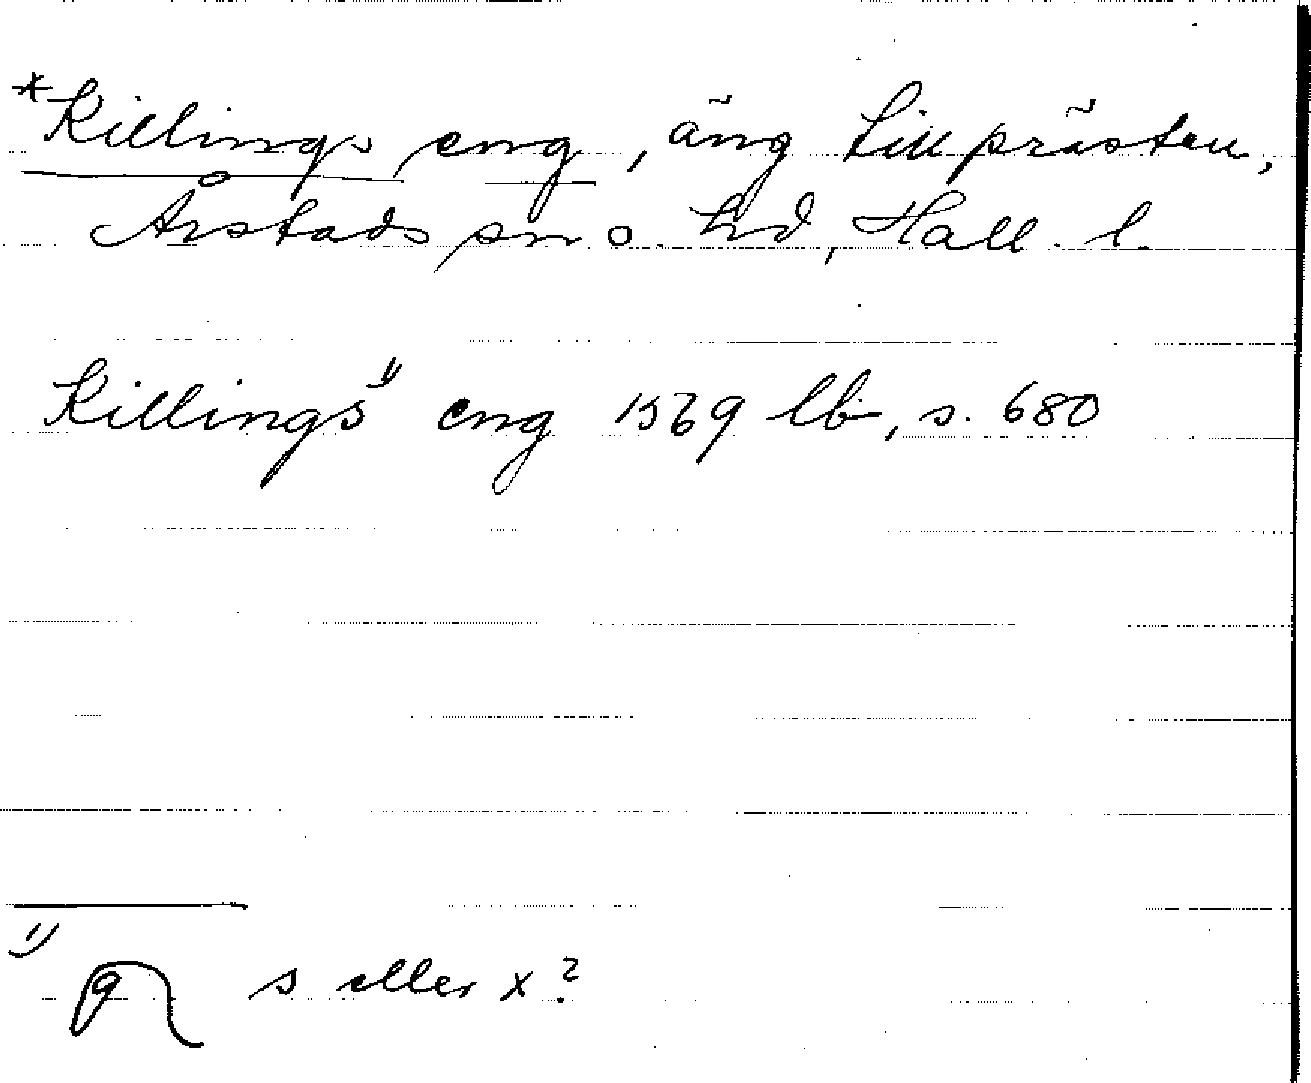 *Killings eng, äng till prästen,
Årstads sn o. hd, Hall. l.
Killings¹⁾ eng 1569 lb, s. 680
¹⁾ s eller x?